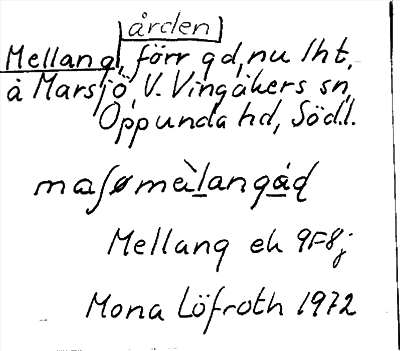 ården
Mellang, förr gd, nu lht,
å Marsjö, V. Vingåkers sn,
Oppunda hd, Södl.
maʃømὰlangάd
Mellang ek 9F8j
Mona Löfroth 1972